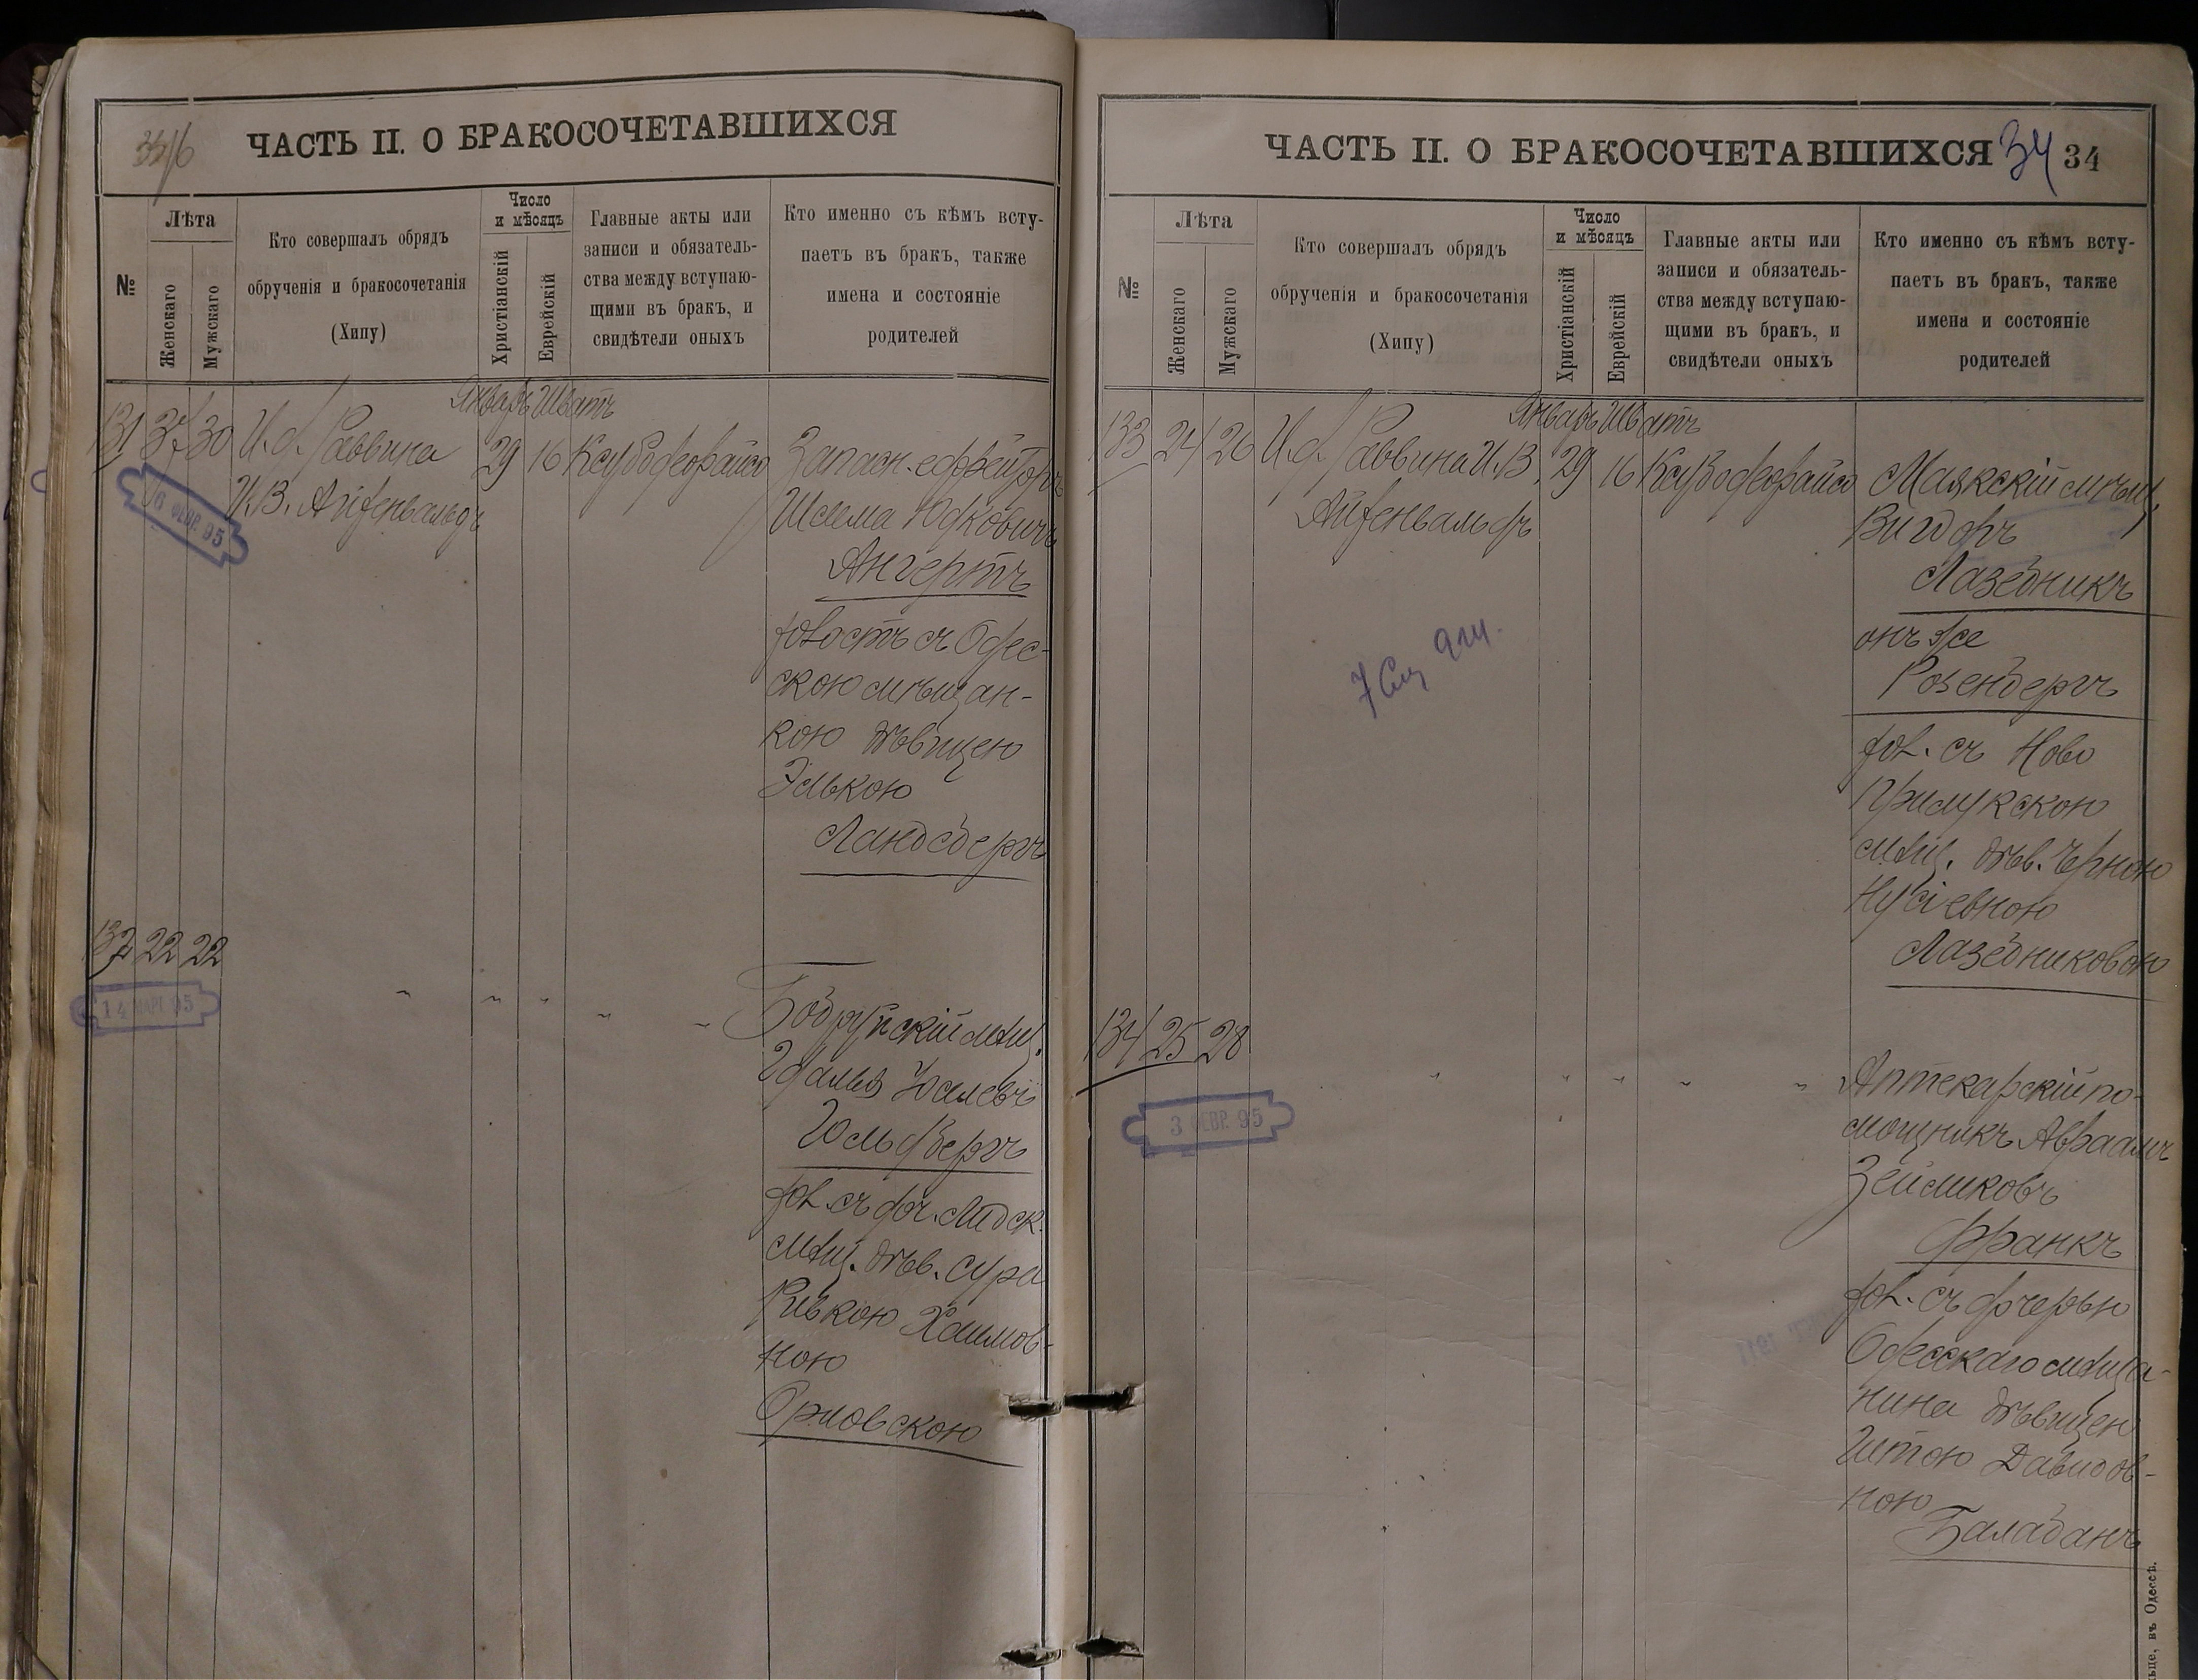 ЧАСТЬ II. О БРАКОСОЧЕТАВШИХСЯ
№
Лѣта
Женскаго
Мужскаго
Кто совершалъ обрядъ
обрученія и бракосочетанія
(Хипу)
Число
и мѣсяцъ
Христіанскій
Еврейскій
Главные акты или
записи и обязатель-
ства между вступаю-
щими въ бракъ, и
свидѣтели оныхъ
Кто именно съ кѣмъ всту-
паетъ въ бракъ, также
имена и состояніе
родителей
131 37 30 И. д. Раввина
И. В. Айзенвальдъ
Январь Шватъ
29 16
6 ФЕВР. 95
Запасн. ефрейторъ
Шлема Юдковичъ
Ангертъ
холостъ съ Одес-
скою мѣщан-
кою дѣвицею
Элькою
Ландсбергъ
132 22 22
14 МАРТ 95
Бобруйскій мѣщ.
Гдалья Юделевъ
Гольдбергъ
хол. съ доч. Лидск.
мѣщ. дѣв. Сура
Ривкою Хаимов-
ною
Орловскою
ЧАСТЬ II. О БРАКОСОЧЕТАВШИХСЯ 34 34
№
Лѣта
Женскаго
Мужскаго
Кто совершалъ обрядъ
обрученія и бракосочетанія
(Хипу)
Число
и мѣсяцъ
Христіанскій
Еврейскій
Главные акты или
записи и обязатель-
ства между вступаю-
щими въ бракъ, и
свидѣтели оныхъ
Кто именно съ кѣмъ всту-
паетъ въ бракъ, также
имена и состояніе
родителей
133 24 26 И. д. Раввина И. В.
Айзенвальдъ
Январь Шватъ
29 16
Маякскій мѣщ.
Вигдоръ
Лазебникъ
онъ же
Розенбергъ
хол. съ Ново
Прилукскою
мѣщ. дѣв. Черною
Нусіевною
Лазебниковою
134 25 28
3 ФЕВР. 95
Аптекарскій по-
мощникъ Авраамъ
Зейликовъ
Франкъ
хол. съ дочерью
Одесскаго мѣща-
нина дѣвицею
Гитою Давидов-
ною
Балабанъ
въ Одессѣ.